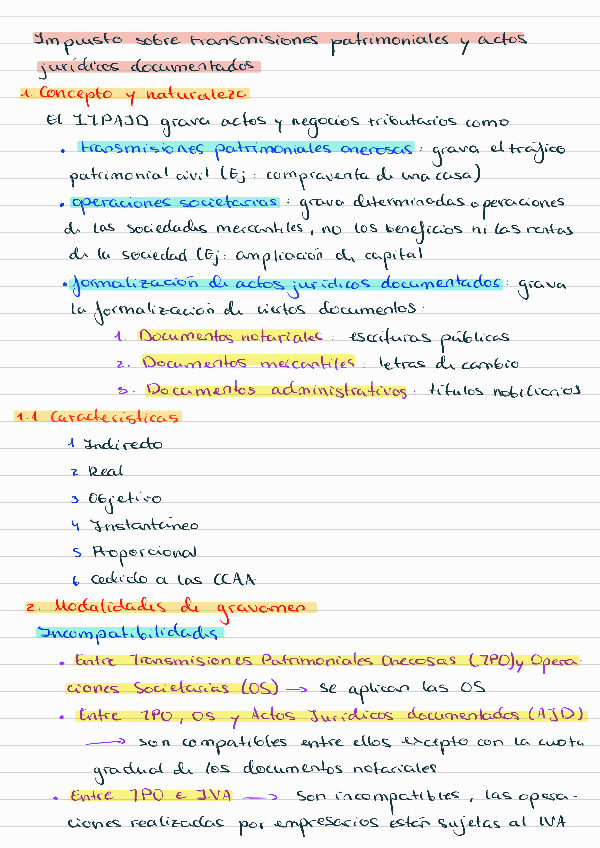 Impuesto sobre transmisiones patrimoniales y actos
jurídicos documentados
1. Concepto y naturaleza
El ITPAJD grava actos y negocios tributarios como
• transmisiones patrimoniales onerosas: grava el tráfico
patrimonial civil (Ej: compraventa de una casa)
• operaciones societarias: grava determinadas operaciones
de las sociedades mercantiles, no los beneficios ni las rentas
de la sociedad (Ej: ampliación de capital
• formalización de actos jurídicos documentados: grava
la formalización de ciertos documentos:
1. Documentos notariales: escrituras públicas
2. Documentos mercantiles: letras de cambio
3. Documentos administrativos: títulos nobiliarios
1.1 Características
1 Indirecto
2 Real
3 Objetivo
4 Instantáneo
5 Proporcional
6 cedido a las CCAA
2. Modalidades de gravamen
Incompatibilidades
• Entre Transmisiones Patrimoniales Onerosas (TPO) y Opera-
ciones Societarias (OS) → se aplican las OS
• Entre TPO, OS y Actos Jurídicos documentados (AJD)
→ son compatibles entre ellos excepto con la cuota
gradual de los documentos notariales
• Entre TPO e IVA → son incompatibles, las opera-
ciones realizadas por empresarios están sujetas al IVA